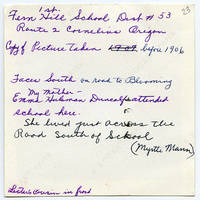 1st.
23
Fern Hill School Dist # 53
Route 2 Cornelius Oregon
Copy of Picture taken 1909 before 1906
Faces South on road to Blooming
My Mother -
Emma Hickman attended
school here.
She lived just across the
Road South of School
(Myrtle Mann)
in front